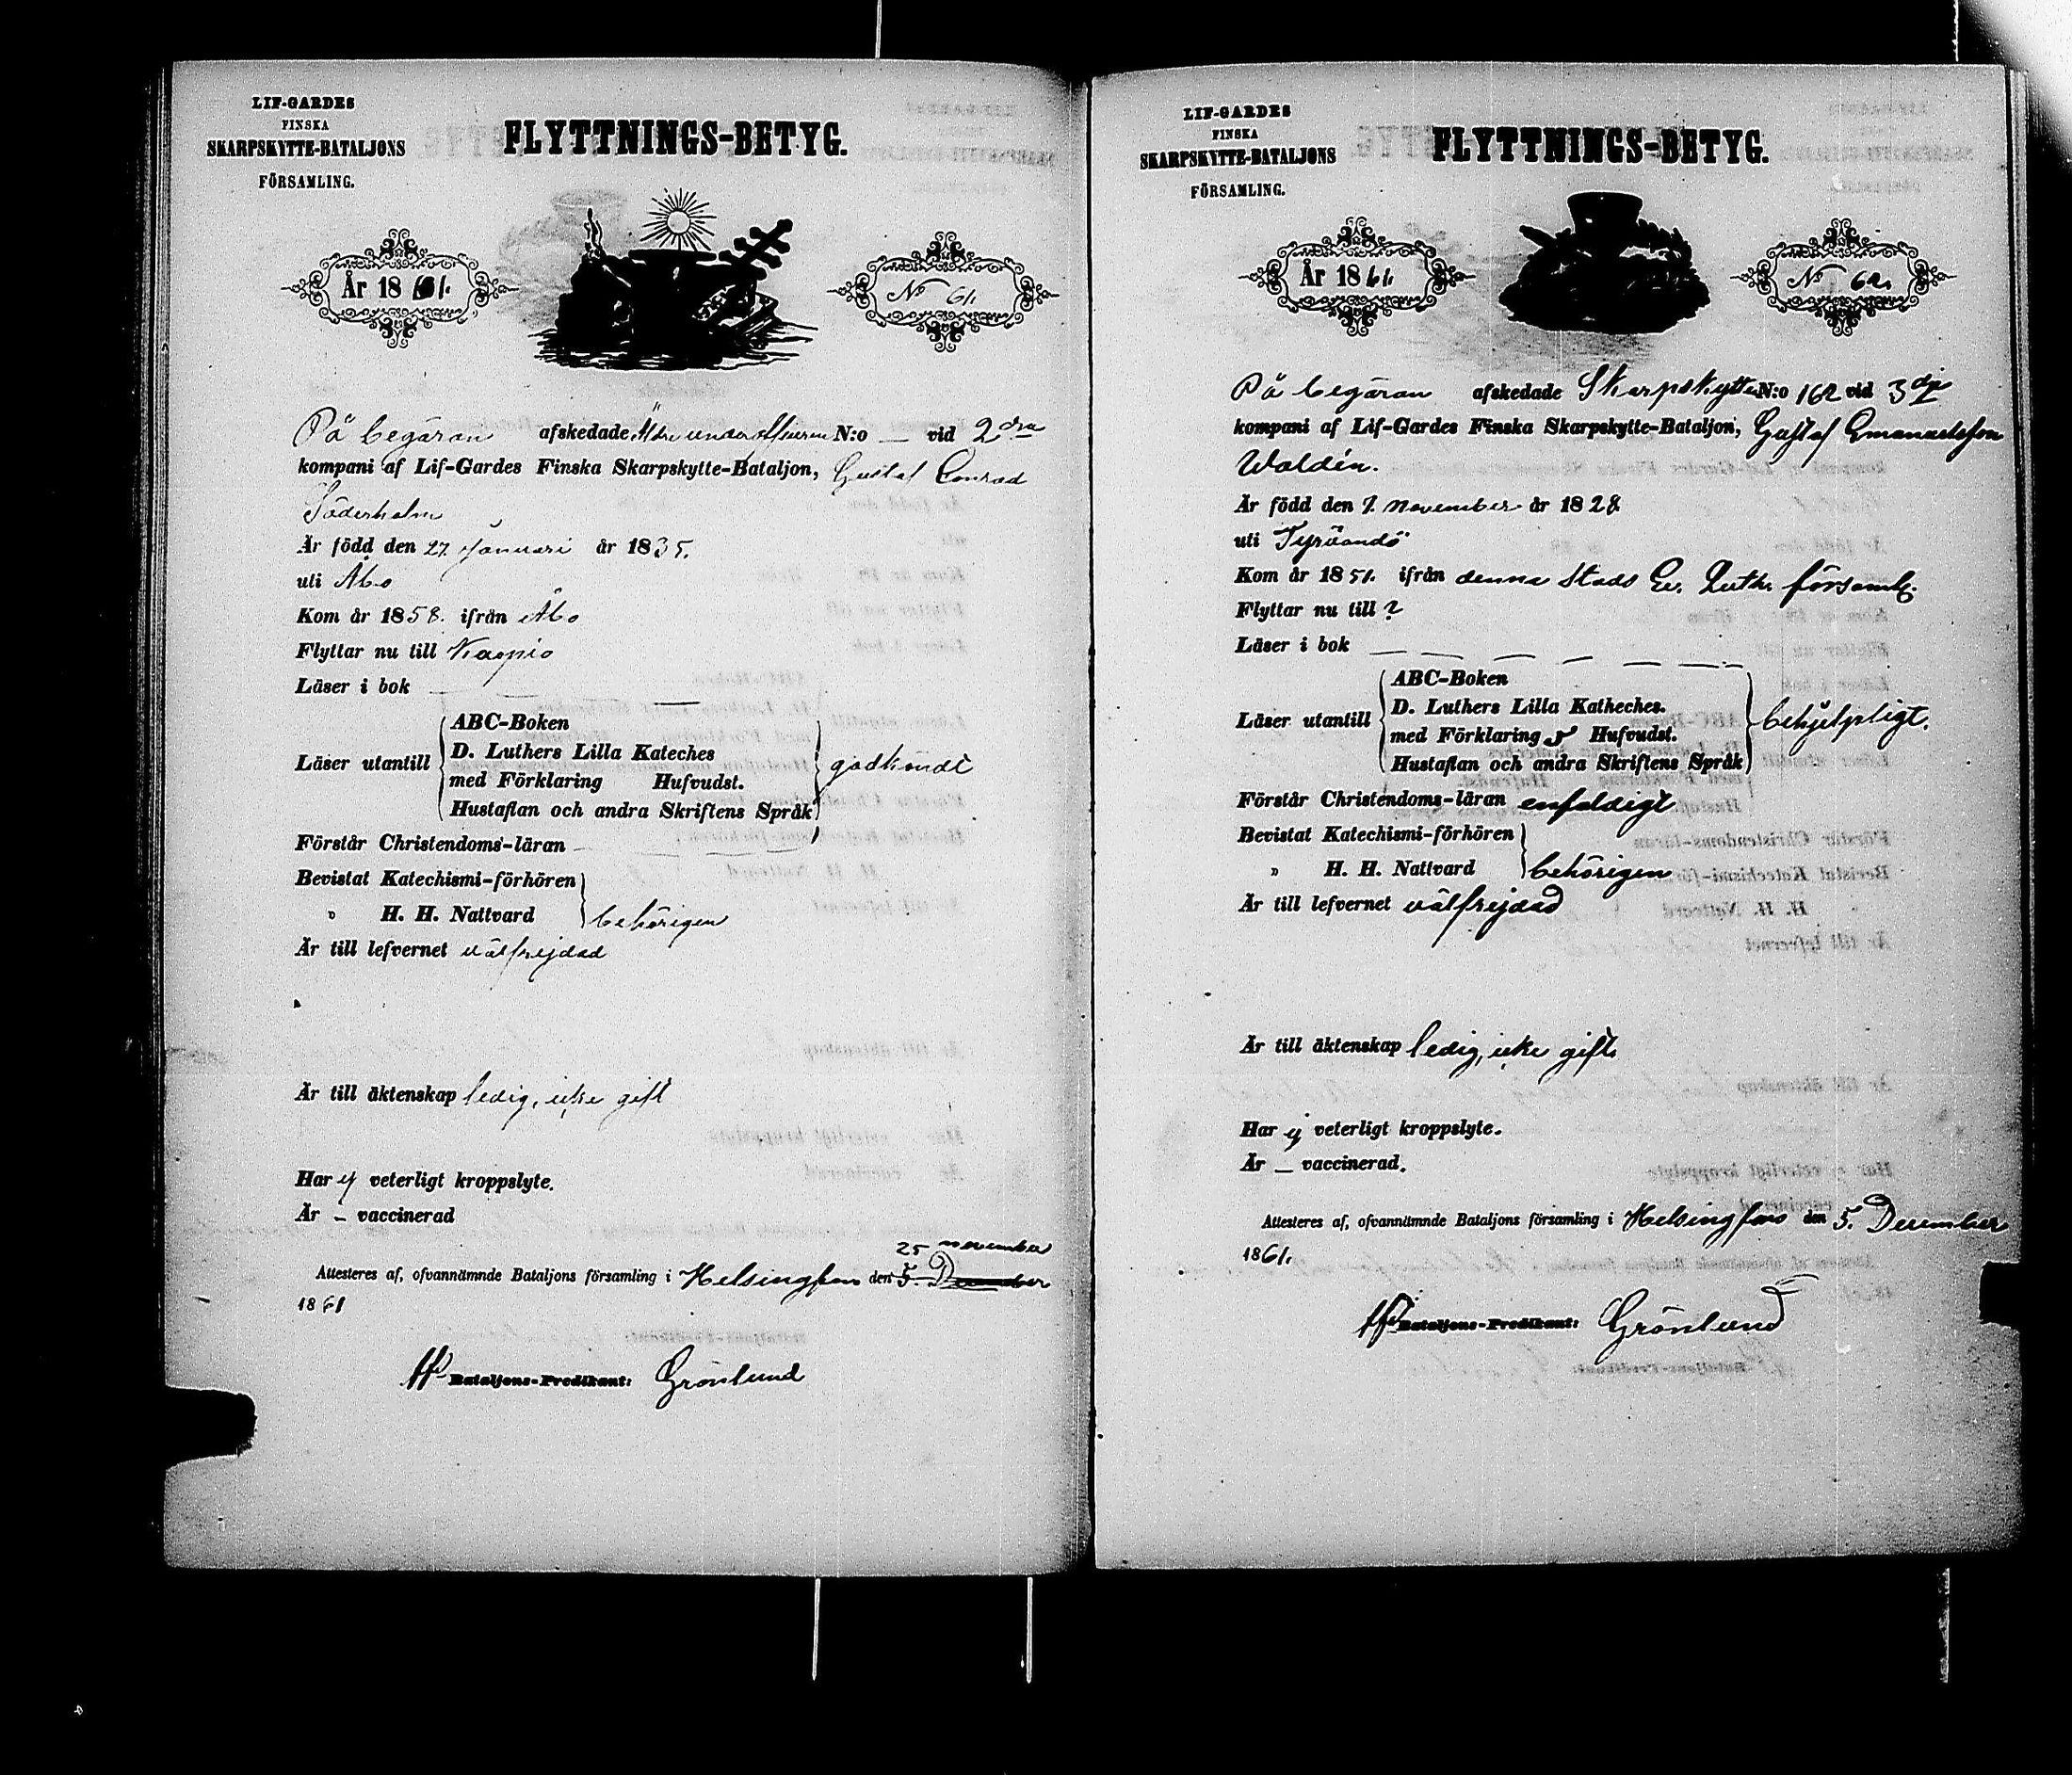 LIF-GARDES
FINSKA
SKARPSKYTTE-BATALJONS
FÖRSAMLING.
FLYTTNINGS-BETYG.
År 1861.
No 61.
På begäran afskedade Äldre underofficeren N:o — vid 2dra
kompani af Lif-Gardes Finska Skarpskytte-Bataljon, Gustaf Conrad
Söderholm
Är född den 27 Januari år 1835.
uti Åbo
Kom år 1858. ifrån Åbo
Flyttar nu till
Läser i bok —
Läser utantill
ABC-Boken
D. Luthers Lilla Kateches
med Förklaring Hufvudst.
Hustaflan och andra Skriftens Språk
godkändt
Förstår Christendoms-läran —
Bevistat Katechismi-förhören
" H. H. Nattvard
behörigen
Är till lefvernet välfrejdad
Är till äktenskap ledig, icke gift
Har ej veterligt kroppslyte.
Är — vaccinerad
25 november
Attesteres af, ofvannämnde Bataljons församling i Helsingfors den 5. December
1861
Bataljons-Predikant: Grönlund
LIF-GARDES
FINSKA
SKARPSKYTTE-BATALJONS
FÖRSAMLING.
FLYTTNINGS-BETYG.
År 1861.
No 62.
På begäran afskedade Skarpskytten N:o 162 vid 3dje
kompani af Lif-Gardes Finska Skarpskytte-Bataljon, Gustaf Emanuelsson
Waldén.
Är född den 7. november år 1828
uti Tyrvändö
Kom år 1851. ifrån denna Stads Ev. Luth. församl.
Flyttar nu till ?
Läser i bok — — — — — —
Läser utantill
ABC-Boken
D. Luthers Lilla Katheches.
med Förklaring Hufvudst.
Hustaflan och andra Skriftens Språk
behjelpligt.
Förstår Christendoms-läran enfaldigt
Bevistat Katechismi-förhören
" H. H. Nattvard
behörigen
Är till lefvernet välfrejdad
Är till äktenskap ledig, icke gift
Har ej veterligt kroppslyte.
Är — vaccinerad.
Attesteres af, ofvannämnde Bataljons församling i Helsingfors den 5. December
1861.
Bataljons-Predikant: Grönlund